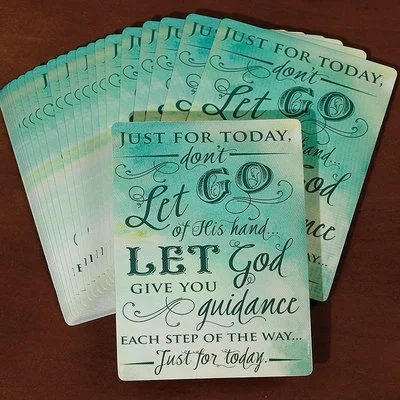 JUST FOR TODAY,
don't
Let GO
of His hand...
LET God
GIVE YOU
guidance
EACH STEP OF THE WAY...
Just for today.
JUST FOR TODAY,
don't
Let GO
hand...
God
guidance
WAY...